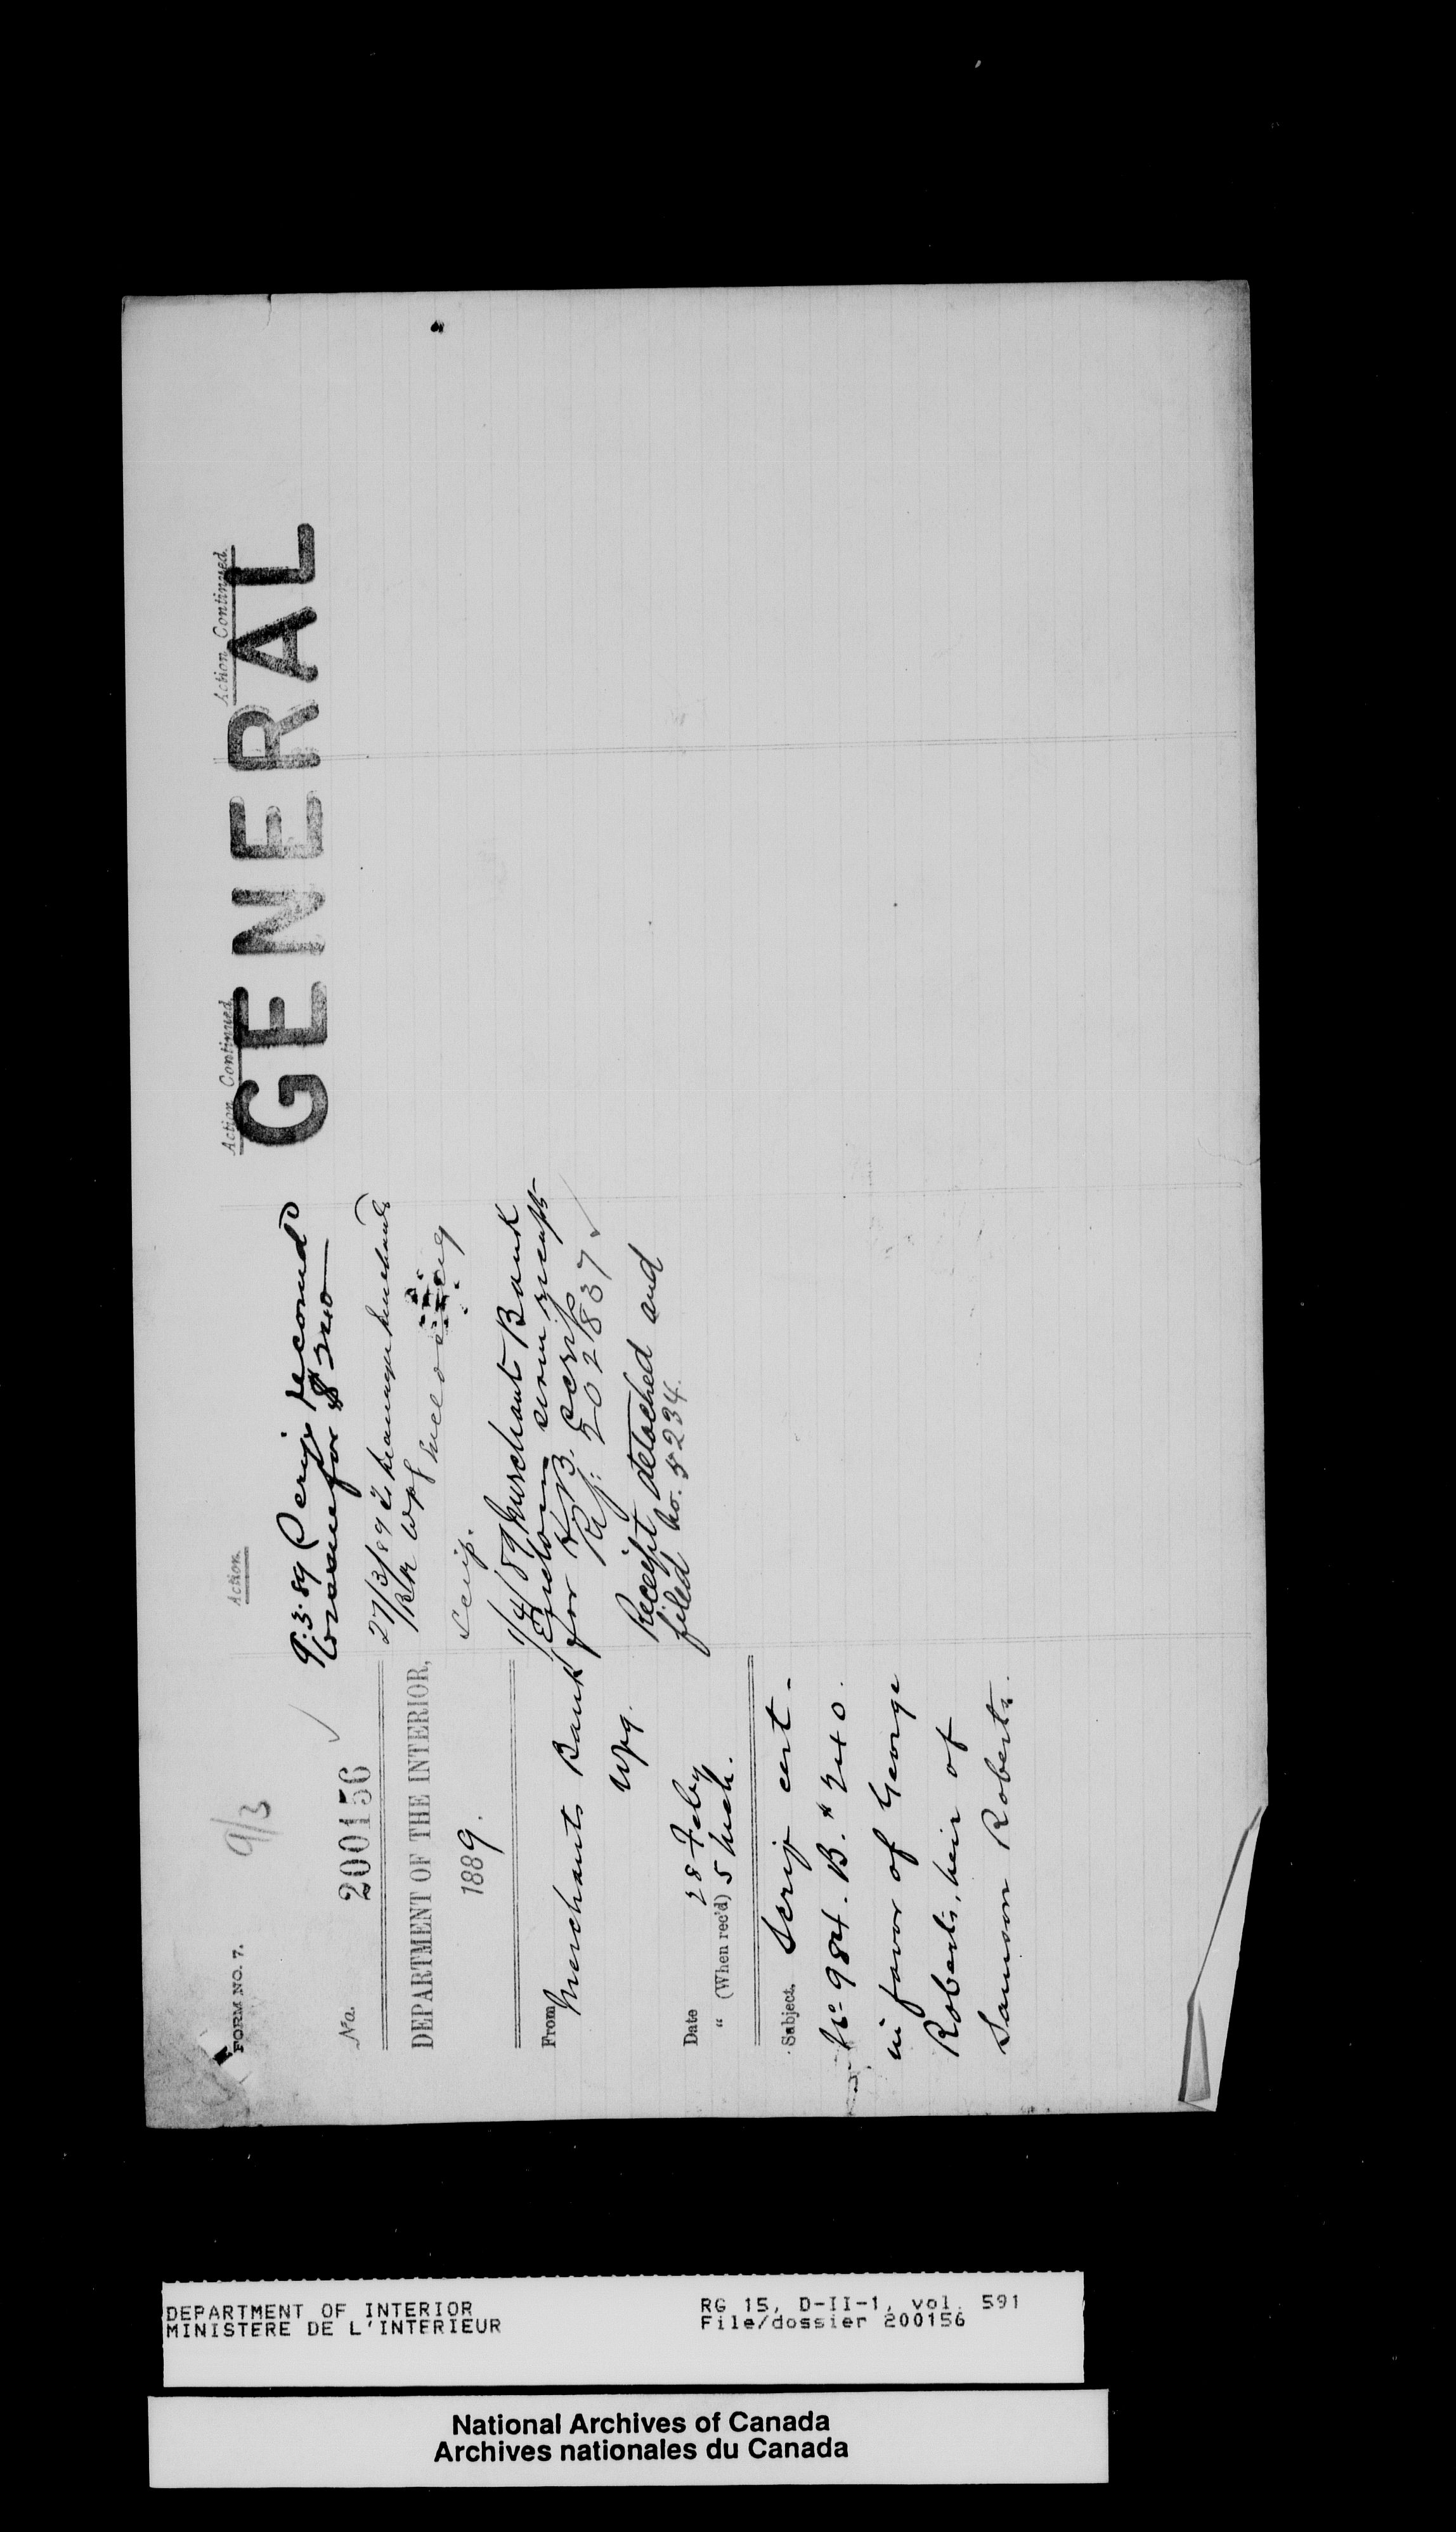 FORM NO. 7.
9/3
No. 200156
DEPARTMENT OF THE INTERIOR,
1889.
From Merchants Bank
Wpg.
Date 28 Feby
" (When rec'd) 5 Mch.
Subject. Scrip cert.
No 984. B. $240.
in favor of George
Roberts, heir of
Samson Roberts.
Action.
9.3.89 Scrip
for $240
27/3/89 Manager Merchants
Bk Wpg
Scrip.
1/4/89 Merchant Bank
for H.B. Scrip
Rf: 202837
Receipt detached and
filed No. 5234.
Action Continued
Action Continued
GENERAL
DEPARTMENT OF INTERIOR
MINISTERE DE L'INTERIEUR
RG 15, D-II-1, vol. 591
File/dossier 200156
National Archives of Canada
Archives nationales du Canada